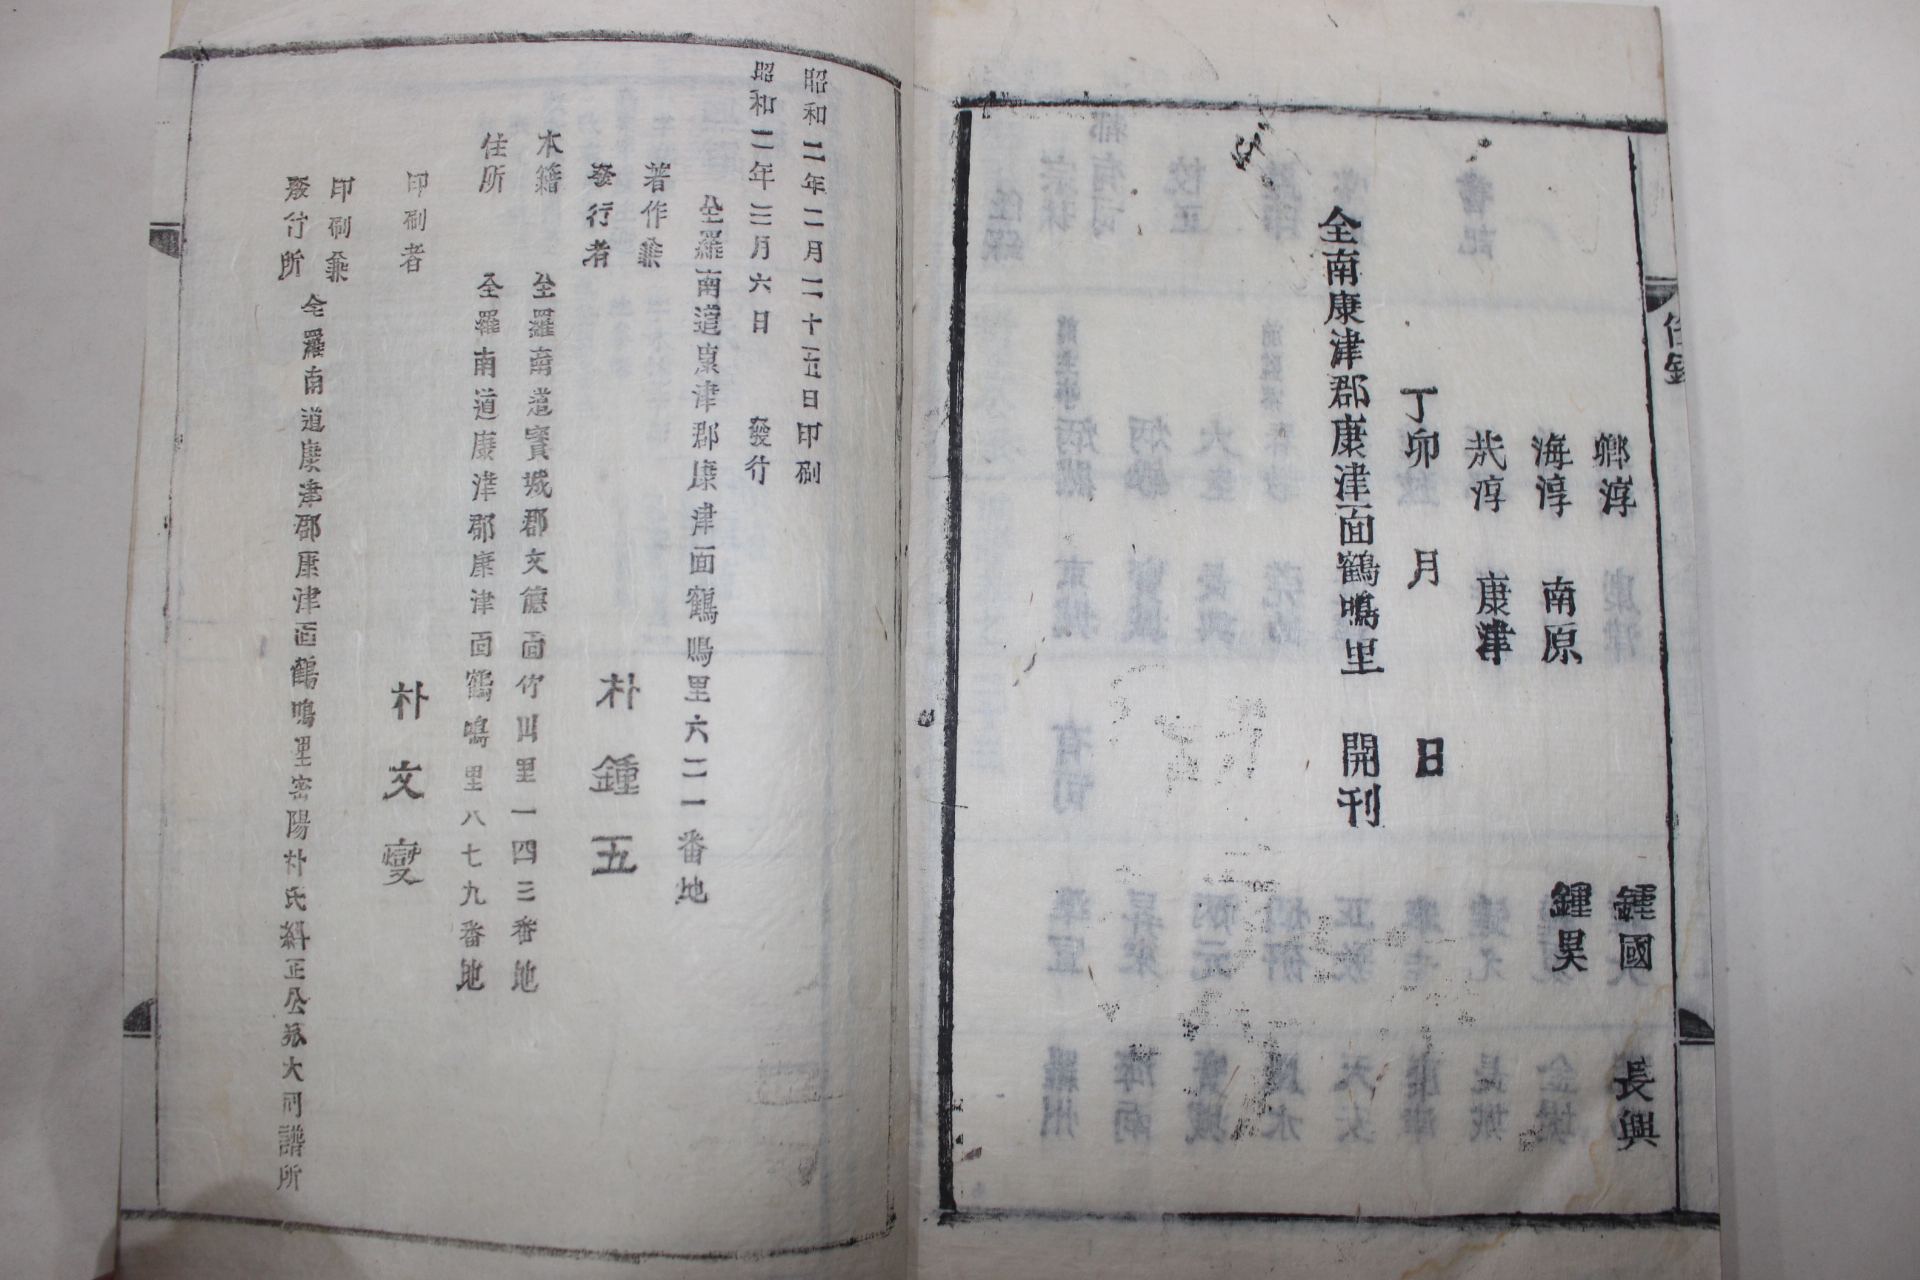 任錄
鄕淳 鍾國 長興
海淳 南原 鍾昊
烖淳 康津
丁卯 月 日
全南康津郡康津面鶴鳴里 開刊
昭和二年二月二十五日印刷
昭和二年三月六日 發行
全羅南道康津郡康津面鶴鳴里六二一番地
著作兼
發行者 朴鍾五
本籍 全羅南道寶城郡文德面竹山里一四三番地
住所 全羅南道康津郡康津面鶴鳴里八七九番地
印刷者 朴文燮
印刷兼
發行所 全羅南道康津郡康津面鶴鳴里密陽朴氏糾正公派大同譜所